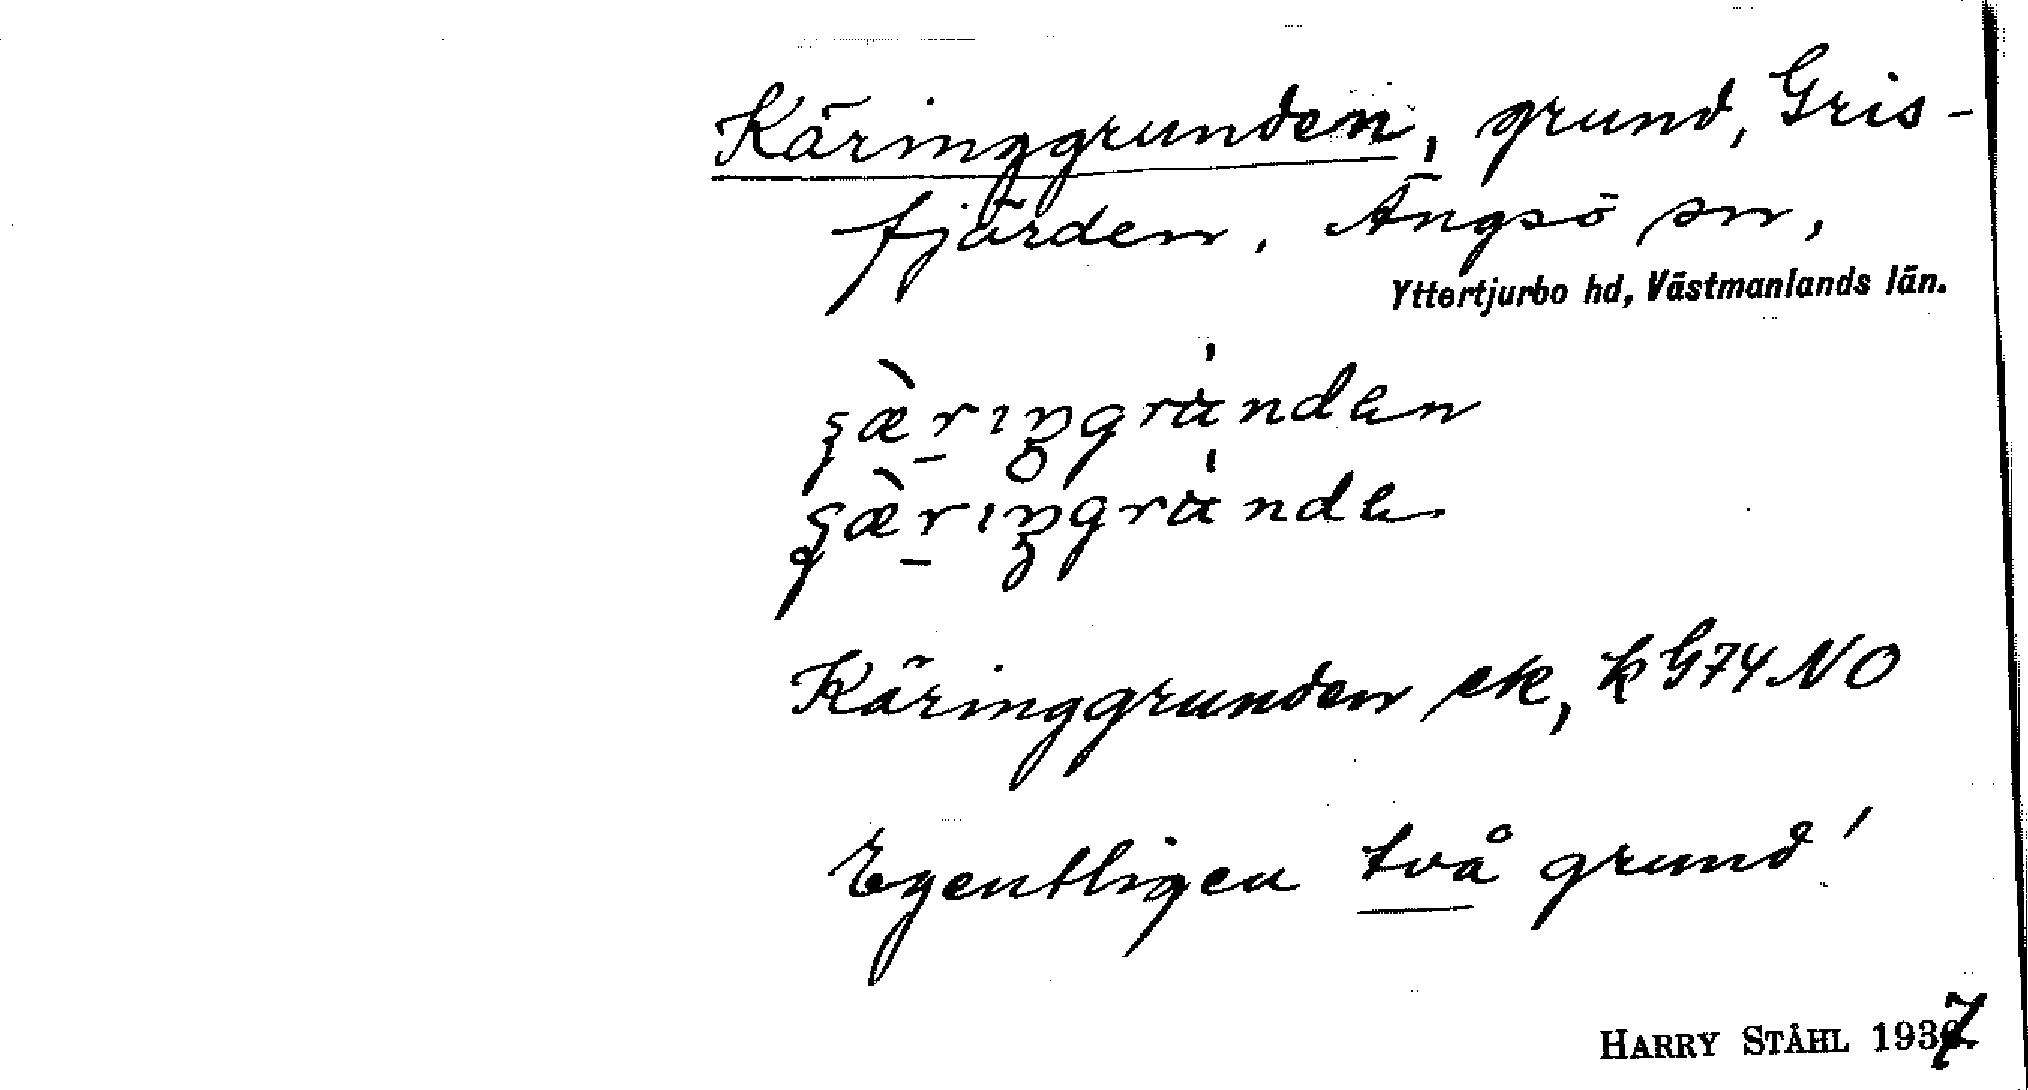 Käringgrunden, grund, Gris-
fjärden, Ängsö sn,
Yttertjurbo hd, Västmanlands län.
Käringgrunden ek, k G74 NO
Egentligen två grund!
HARRY STÅHL 1937